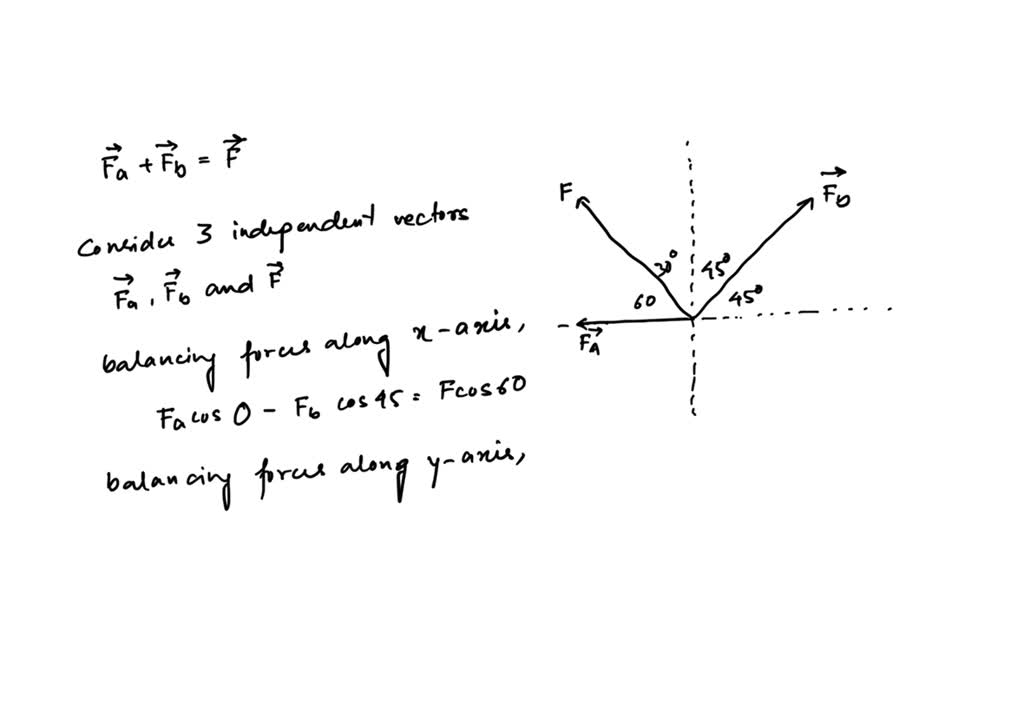 F⃗a + F⃗b = F⃗
Consider 3 independent vectors
F⃗a, F⃗b and F⃗
balancing forces along x-axis,
Fa cos 0 - Fb cos 45 = F cos 60
balancing forces along y-axis,
F
F⃗b
30°
45°
60
45°
F⃗a